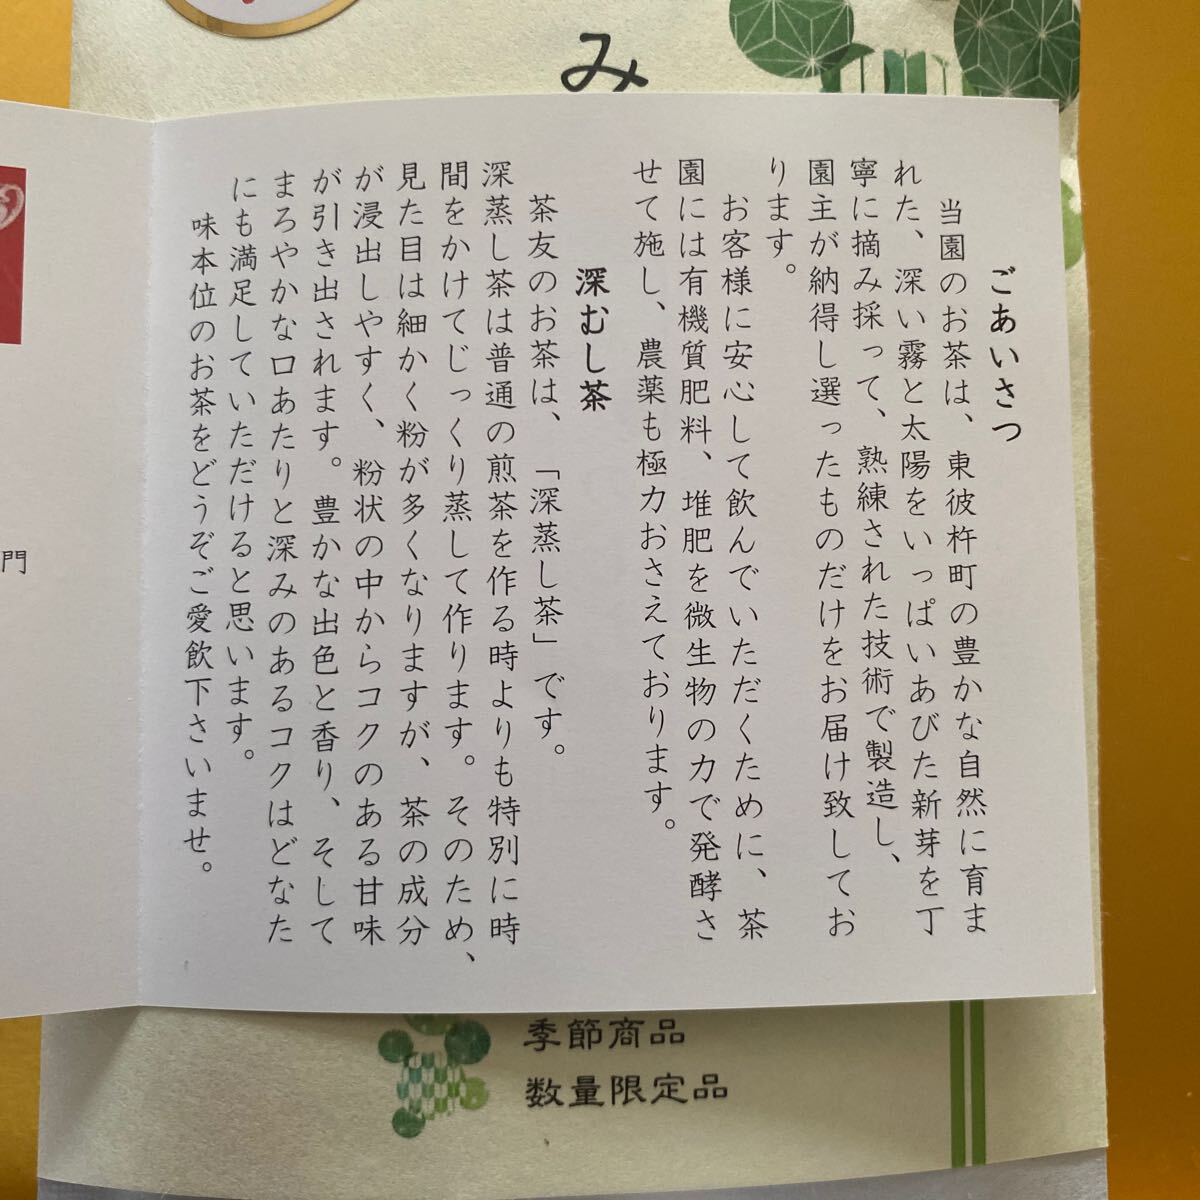 み
ごあいさつ
当園のお茶は、東彼杵町の豊かな自然に育ま
れた、深い霧と太陽をいっぱいあびた新芽を丁
寧に摘み採って、熟練された技術で製造し、
園主が納得し選ったものだけをお届け致してお
ります。
お客様に安心して飲んでいただくために、茶
園には有機質肥料、堆肥を微生物の力で発酵さ
せて施し、農薬も極力おさえております。
深むし茶
茶友のお茶は、「深蒸し茶」です。
深蒸し茶は普通の煎茶を作る時よりも特別に時
間をかけてじっくり蒸して作ります。そのため、
見た目は細かく粉が多くなりますが、茶の成分
が浸出しやすく、粉状の中からコクのある甘味
が引き出されます。豊かな出色と香り、そして
まろやかな口あたりと深みのあるコクはどなた
にも満足していただけると思います。
味本位のお茶をどうぞご愛飲下さいませ。
門
季節商品
数量限定品